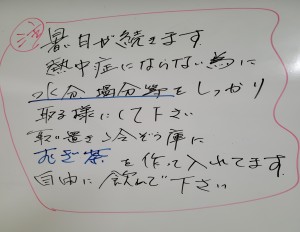 注
暑い日が続きます
熱中症にならない為に
水分 塩分等をしっかり
取る様にして下さい
冷ぞう庫に
むぎ茶を作って入れてます
自由に飲んで下さい